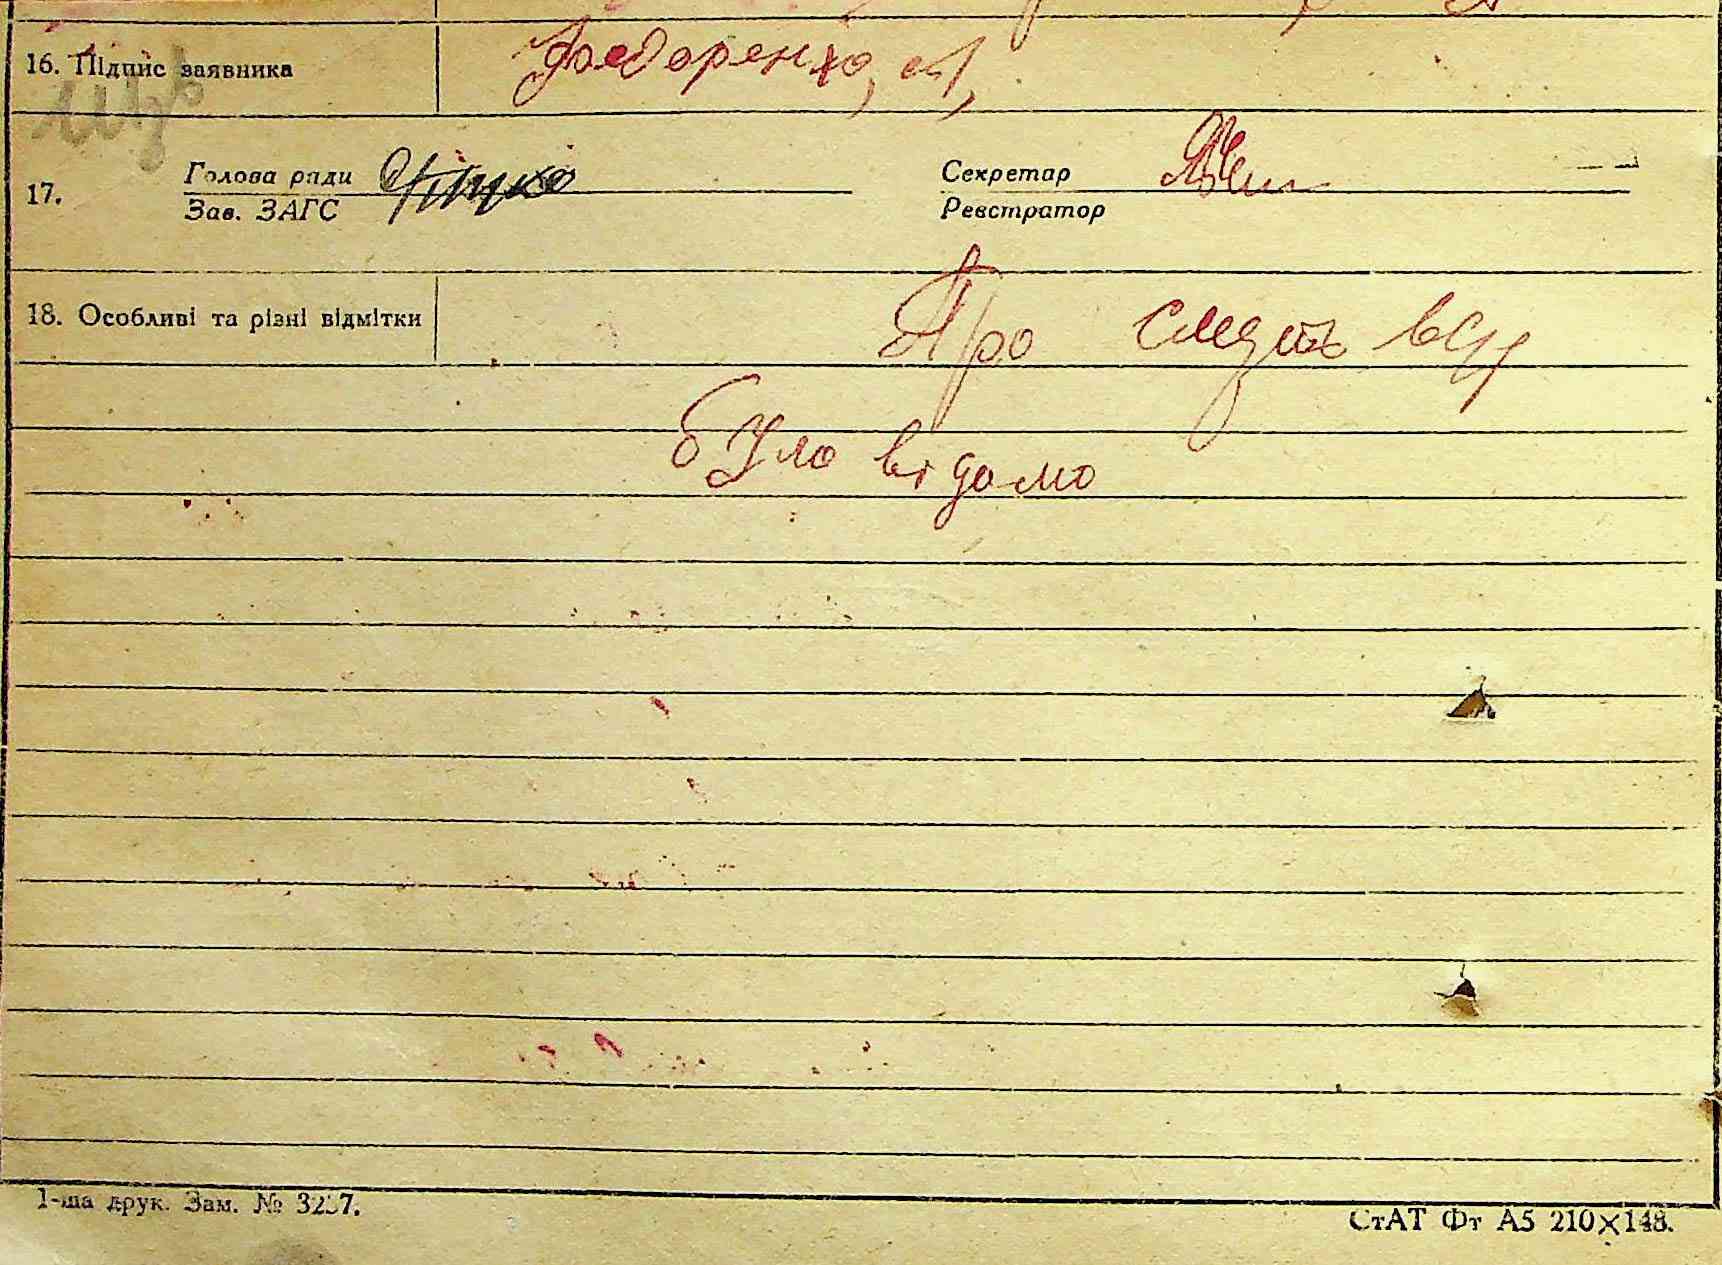 16. Підпис заявника Фведоренко, М,
17. Голова ради Секретар
Зав. ЗАГС Реєстратор
18. Особливі та різні відмітки Про смерть
було відомо
1-ша друк. Зам. № 3257.
СтАТ Фт А5 210×148.